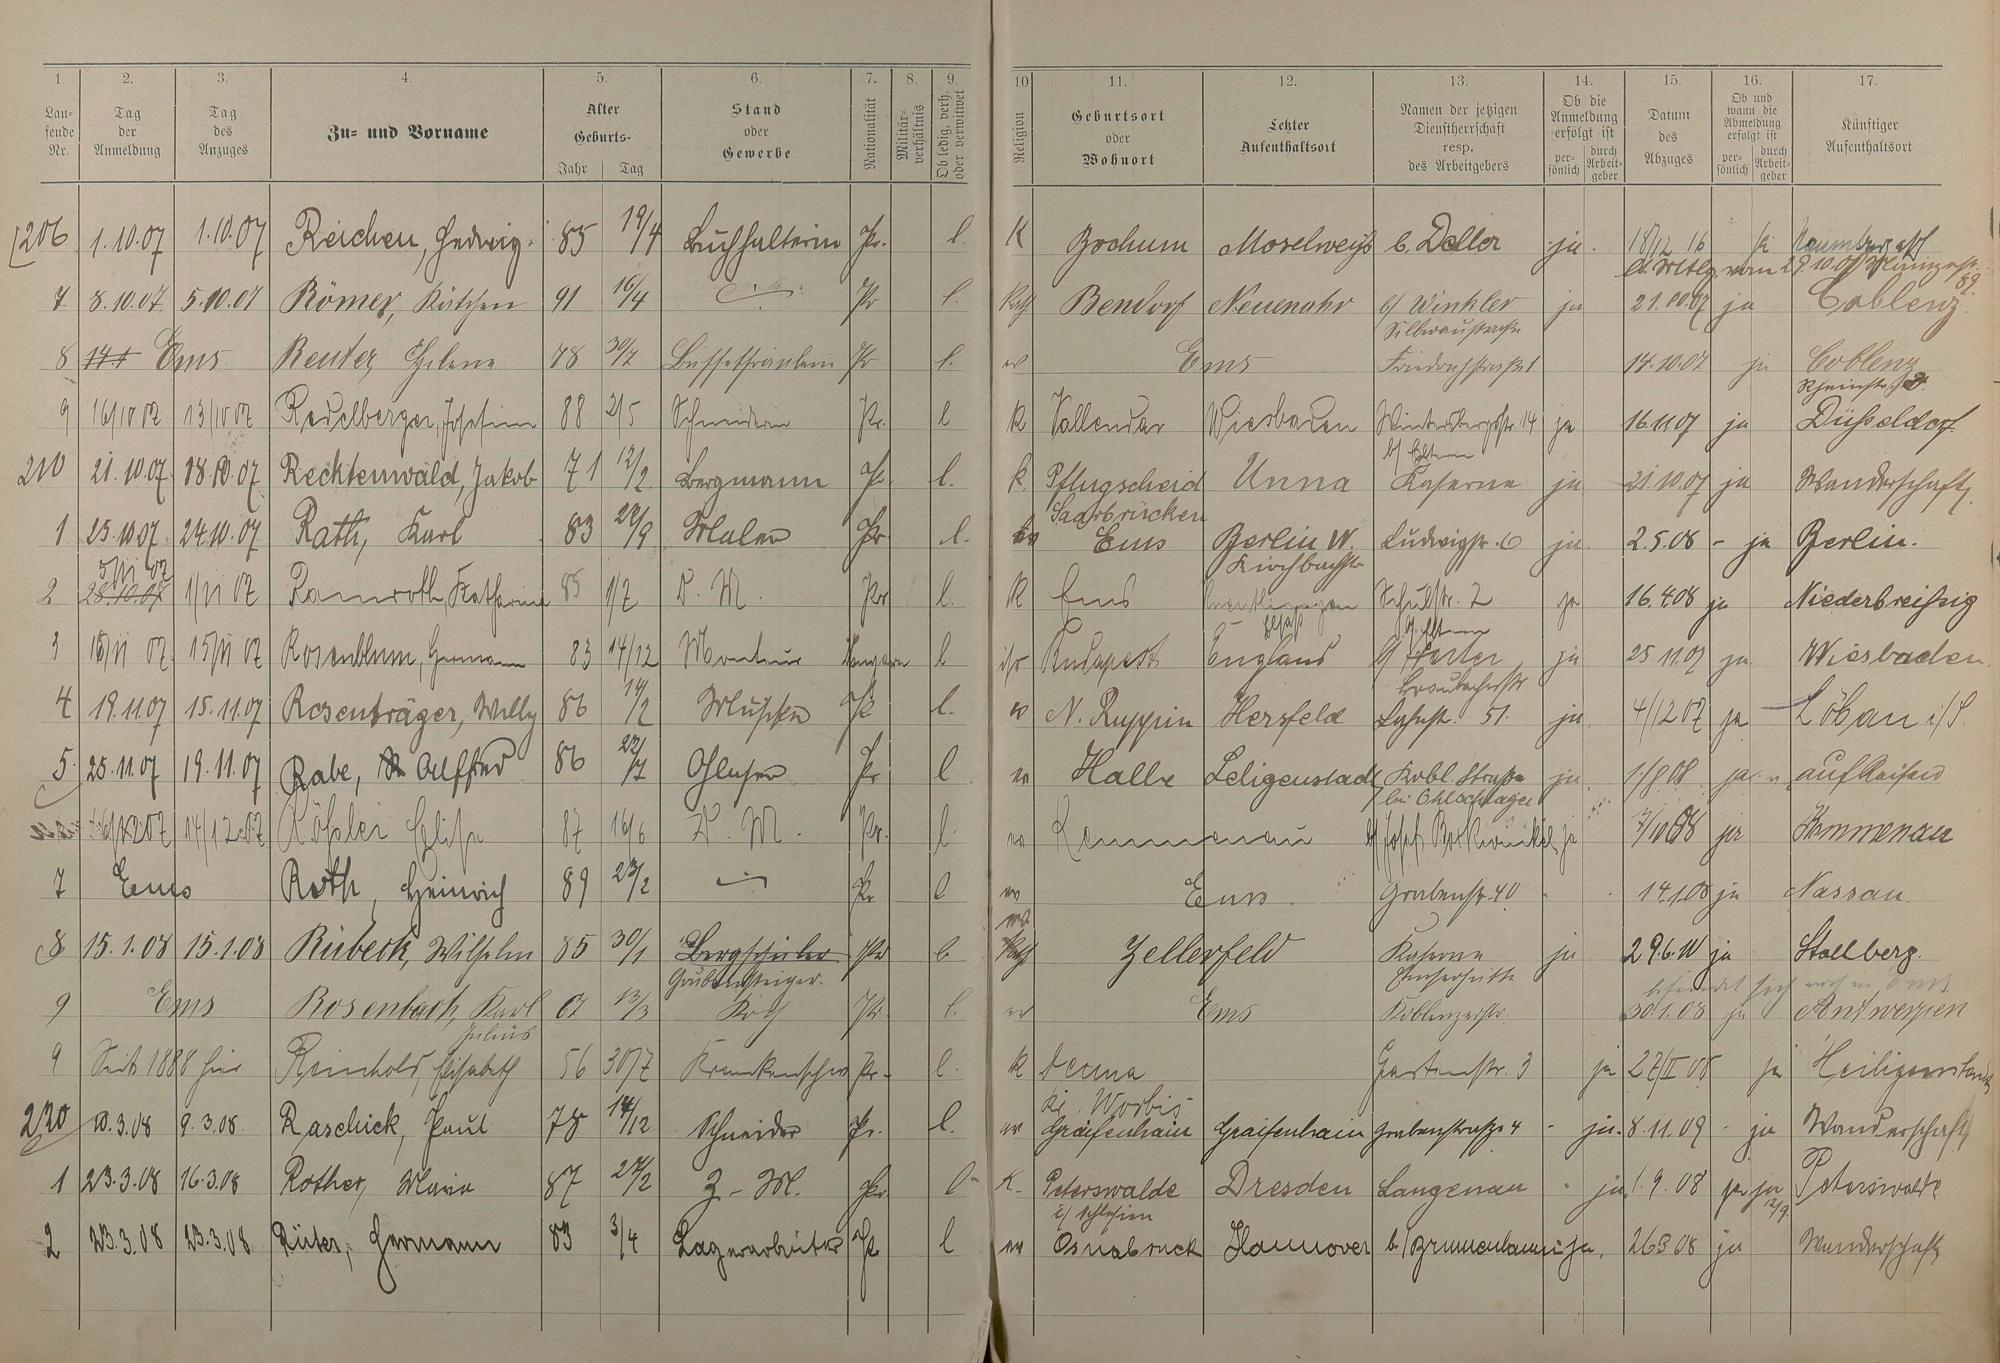 1. 2. 3. 4. 5. 6. 7. 8. 9. 10 11. 12. 13. 14. 15. 16. 17.
Lau-
fende
Nr.
Tag
der
Anmeldung
Tag
des
Anzuges
Zu- und Vorname
Alter
Geburts-
Jahr Tag
Stand
oder
Gewerbe
Nationalität
Militär-
verhältnis
Ob ledig, verh.
oder verwitwet
Religion
Geburtsort
oder
Wohnort
Letzter
Aufenthaltsort
Namen der jetzigen
Dienstherrschaft
resp.
des Arbeitgebers
Ob die
Anmeldung
erfolgt ist
per-
sönlich
durch
Arbeit-
geber
Datum
des
Abzuges
Ob und
wann die
Abmeldung
erfolgt ist
per-
sönlich
durch
Arbeit-
geber
Künftiger
Aufenthaltsort
206 1.10.07 1.10.07 Reichen, Hedwig 85 19/4 Buchhalterin Pr. l. K Bochum Moselweiß b. Deller ja 18/12 16
7 8.10.07 5.10.07 Römer, Kätchen 91 16/4 Pr l. Kath Bendorf Neuenahr b/ Winkler ja 21.10.07 ja Coblenz
Silberaustraße
8 Ems Reuter, Helene 78 30/7 Büffetfräulein Pr l. ev Ems Friedrichstraße 1 14.10.07 ja Coblenz
9 16/10 07 13/10 07 Redelberger, Josefine 88 2/5 Schneiderin Pr. l K Vallendar Wiesbaden Wintersbergstr. 14 ja 16 11 07 ja Düsseldorf
b/ Eltern
210 21.10.07 18.10.07 Rechtenwald, Jakob 71 12/2 Bergmann Pr l. k. Pflugscheid Unna Kaserne ja 21.10.07 ja Wanderschaft
Saarbrücken
1 25.10.07 24.10.07 Rath, Karl 83 28/9 Maler Pr l. ev Ems Berlin W. Ludwigstr. 6 ja 2.5.08 - ja Berlin.
Kirchbachstr
5/11 07
2 28.10.07 1/11 07 Ramroth, Katharina 85 1/7 D. M. Pr l. K Ems Schulstr. 2 ja 16.4.08 ja Niederbreisig
Elsaß b/ Eltern
3 18/11 07 15/11 07 Rosenblum, Hermann 83 14/12 Monteur Ungarn l isr Budapest England ja 25 11.07 ja Wiesbaden
4 19.11.07 15.11.07 Rosenträger, Willy 86 14/2 Musiker Pr l. ev N. Ruppin Hersfeld Lahnstr. 51. ja 4/12 07 ja Löbau i/S.
5. 25.11.07 19.11.07 Rabe, Alfred 86 22/7 Glaser Pr l ev Halle Seligenstadt Kobl. Straße ja 1/8 08 ja auf Reisen
bei Ohlschläger
16/12 07 14/12.07 Rößler Elise 87 16/6 D. M. Pr. l. ev Kemmenau b/ Josef ja 7/10 08 ja Kemmenau
7 Ems Roth, Heinrich 89 23/2 Pr l ev Ems Grabenstr. 40 14.1.08 ja Nassau.
8 15.1.08 15.1.08 Rübeck, Wilhelm 85 30/1 Bergschüler Pr l. Zellerfeld Kaserne ja 29.6.10 ja Stollberg.
Grubensteiger. Emserhütte
9 Ems Rosenbach, Karl 07 13/3 Koch Pr l. ev Ems Koblenzerstr. 30.1.08 ja Antwerpen
Julius
9 Seit 1888 hier Reinhold, Elisabeth 56 30/7 Krankenschw Pr. l. K Gartenstr. 3 ja 27/II 08 ja Heiligenstadt
Worbis
220 10.3.08 9.3.08. Raschick, Paul 78 14/12 Schneider Pr. l. ev Gräfenhain Graifenhain Grabenstraße 4 - ja. 8.11.09 - ja Wanderschaft
1 23.3.08 16.3.08 Rother, Maria 87 27/2 Z-M. Pr l K. Peterswalde Dresden Langenau ja 1.9.08 ja ja Peterswalde
i/ Schlesien 12/9
2 23.3.08 23.3.08 Rüter, Hermann 83 3/4 Lagerarbeiter Pr l ev Osnabrück Hannover ja. 26 3 08 ja Wanderschaft